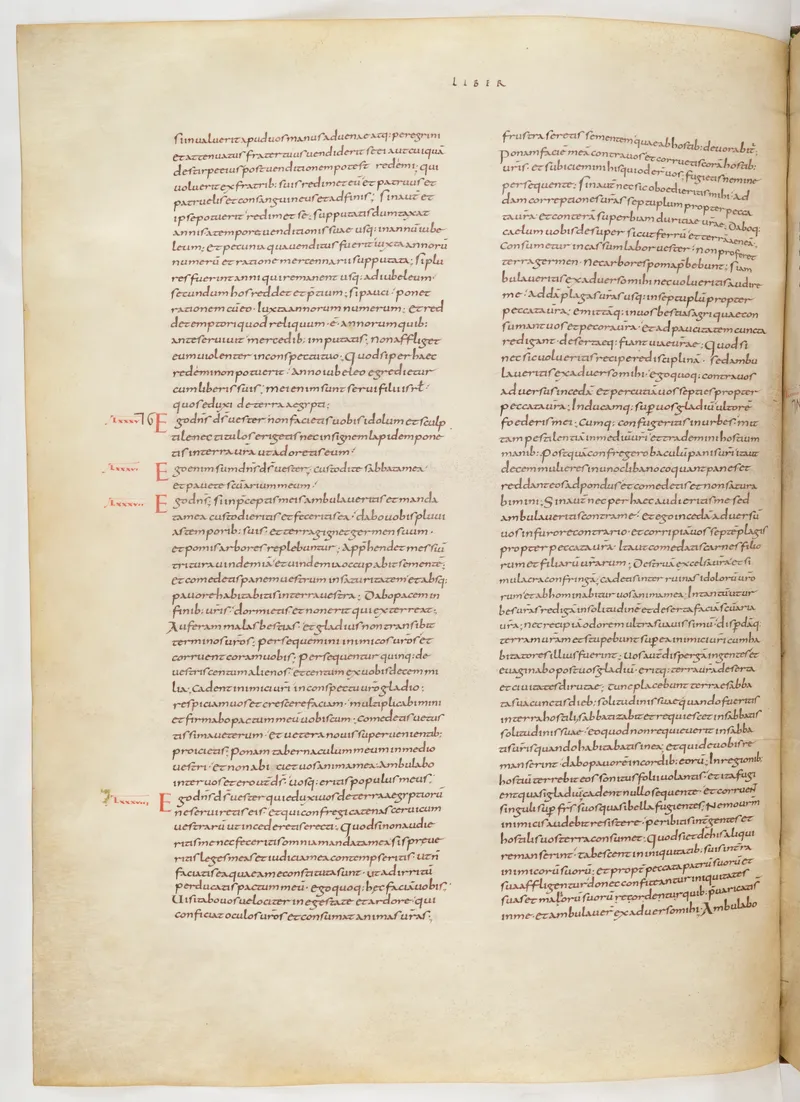 LIBER
si inualuerit apud uos manus aduenae atq: peregrini
et attenuatus frater tuus uendiderit se ei aut cuiquā
de stirpe eius post uenditionem potest redemi; qui
uoluerit ex fratrib: suis redimet eū et patruus et
patruelis et consanguineus et adfinis; Sin aut̄ et
ipse potuerit redimet se; supputatis dumtaxat
annis a tempore uenditionis suae usq: in annū iube
leum; et pecunia qua uenditus fuerit iuxta annorū
numerū et rationem mercennarii supputata; si plu
res fuerint anni qui remanent usq: ad iubeleum
secundum hos reddet et p̄tium; si pauci ponet
rationem cū eo iuxta annorum numerum; et red
det emptori quod reliquum ē annorum quib:
ante seruiuit mercedib: imputatis; non affliget
eum uiolenter in conspectu tuo; Quod si per haec
redemi non potuerit anno iubeleo egredietur
cum liberis suis; mei enim sunt serui filii isrl̄
quos eduxi de terra aegypti;
lxxxv 76 Ego dn̄s ds̄ uester non facietis uobis idolum et sculp
tile nec titulos erigetis nec insignem lapidem pone
tis in terra ura ut adoretis eum;
lxxxvi Ego enim sum dn̄s ds̄ uester; custodite sabbata mea
et pauete sc̄uarium meum;
lxxxvii Ego dn̄s; si in p̄ceptis meis ambulaueritis et manda
ta mea custodieritis et feceritis ea dabo uobis pluui
as temporib: suis et terra gignet germen suum
et pomis arbores replebuntur; App̄hendet messiū
tritura uindemiā et uindemia occupabit sementē;
et comedetis panem uestrum in saturitatem et absq:
pauore habitabitis in terra uestra; Dabo pacem in
finib: uris; dormietis et non erit qui exterreat;
Auferam malas bestias et gladius non transibit
terminos uros; persequemini inimicos uros et
corruent coram uobis; persequentur quinq: de
uestris centum alienos et centum ex uobis decem mi
lia; cadent inimici uri in conspectu uro gladio;
respiciam uos et crescere faciam multiplicabimini
et firmabo pactum meum uobiscum comedetis uetus
tissima ueterum et uetera nouis superuenientib:
proicietis; Ponam tabernaculum meum in medio
uestri et non abiciet uos anima mea; Ambulabo
inter uos et ero ur̄ ds̄ uosq: eritis populus meus;
lxxxviii Ego dn̄s ds̄ uester qui eduxi uos de terra aegyptiorū
ne seruiretis eis et qui confregi catenas ceruicum
uestrarū ut incederetis erecti; Quod si non audie
ritis me nec feceritis omnia mandata mea si spreue
ritis leges meas et iudicia mea contempseritis ut n̄
faciatis ea quae a me constituta sunt ut ad irritū
perducatis pactum meū ego quoq: hęc faciā uobis
Uisitabo uos uelociter in egestate et ardore qui
conficiat oculos uros et consumat animas uras;
frustra seretis sementem quae ab hostib: deuorabit̄;
Ponam faciē meā contra uos et corruetis corā hostib:
uris et subiciemini his qui oder̄ uos; fugietis nemine
persequente; sin aut̄ nec sic oboedieritis mihi ad
dam correptiones uras septuplum propter pecca
ta ura et conterā superbiam duritiae urae; Daboq:
caelum uobis desuper sicut ferrū et terrā aeneā
Consumetur incassum labor uester non proferet
terra germen nec arbores poma p̄bebunt; si am
bulaueritis ex aduerso mihi nec uolueritis audire
me addā plagas uras usq: in septuplū propter
peccata ura; emittāq: in uos bestias agri quae con
sumant uos et pecora ura et ad paucitatem cuncta
redigant desertaeq: fiant uiae urae; Quod si
nec sic uolueritis recipere disciplinā sed ambu
laueritis ex aduerso mihi ego quoq: contra uos
aduersus incedā et percutiā uos septies propter
peccata ura; Inducamq: sup uos gladiū ultorē
foederis mei; Cumq: confugeritis in urbes mit
tam pestilentiā in mediū uri et trademini hostium
manib: Postquā confregero baculū panis uri ita ut
decem mulieres in uno clibano coquant panes et
reddant eos ad pondus et comedetis et non satura
bimini; Sin aut̄ nec per haec audieritis me sed
ambulaueritis contra me et ego incedā aduersū
uos in furore contrario et corripiā uos septē plagis
propter peccata ura; Ita ut comedatis carnes filio
rum et filiarū urarum; Destruā excelsa ura et si
mulacra confringā; cadetis inter ruinas idolorū uro
rum et abhominabitur uos anima mea; In tantū ut ur
bes uras redigā in solitudinē et deserta faciā sc̄uaria
ura; nec recipiā odorem ultra suauissimū disp̄dāq:
terram uram et stupebunt sup ea inimici uri cum ha
bitatores illius fuerint; Uos aut̄ dispergā in gentes et
euaginabo post uos gladiū eritq: terra ura deserta
et ciuitates dirutae; tunc placebunt terrae sabba
ta sua cunctis dieb: solitudinis suae quando fueritis
in terra hostili; sabbatizabit et requiescet in sabbatis
solitudinis suae eo quod non requieuerit in sabba
tis uris quando habitabatis in ea; et qui de uobis re
manserint dabo pauorē in cordib: eorū; In regionib:
hostiū terrebit eos sonitus folii uolantis et ita fugi
ent quasi gladiū; cadent nullo sequente et corruen̄
singuli sup fr̄s suos quasi bella fugientes; Nemo urm
inimicis audebit resistere peribitis int̄ gentes et
hostilis uos terra consumet; Quod si et de his aliqui
remanserint tabescent in iniquitatib: suis in t̄ra
inimicorū suorū; et propt̄ peccata patrū suorū et
sua affligentur donec confiteantur iniquitates
suas et malorū suorū recordentur quib: p̄uaricati s̄
in me et ambulauer̄ ex aduerso mihi; Ambulabo